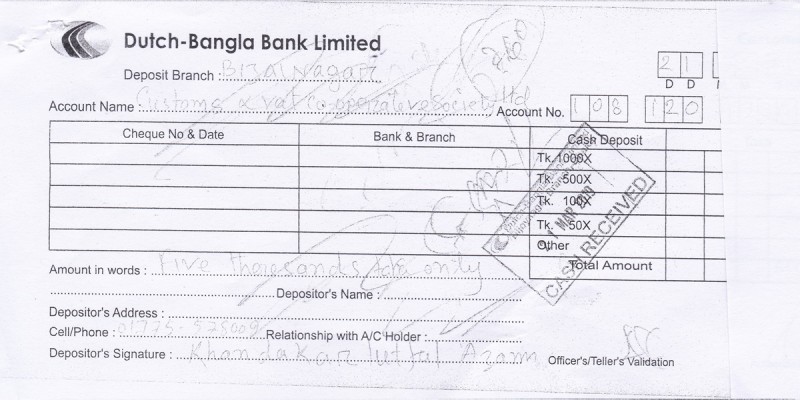 Dutch-Bangla Bank Limited
Deposit Branch : Bijoi Nagar
21
D D
Account Name : Customs & Vat Co-operative Society Ltd Account No. 108 120
Cheque No & Date Bank & Branch Cash Deposit
Tk. 1000X
Tk. 500X
Tk. 100X
Tk. 50X
Other
Total Amount
MAR 2019
CASH RECEIVED
Amount in words : Five thousands tk only
Depositor's Name :
Depositor's Address :
Cell/Phone : Relationship with A/C Holder :
Depositor's Signature : Khandakar lutful Azam Officer's/Teller's Validation